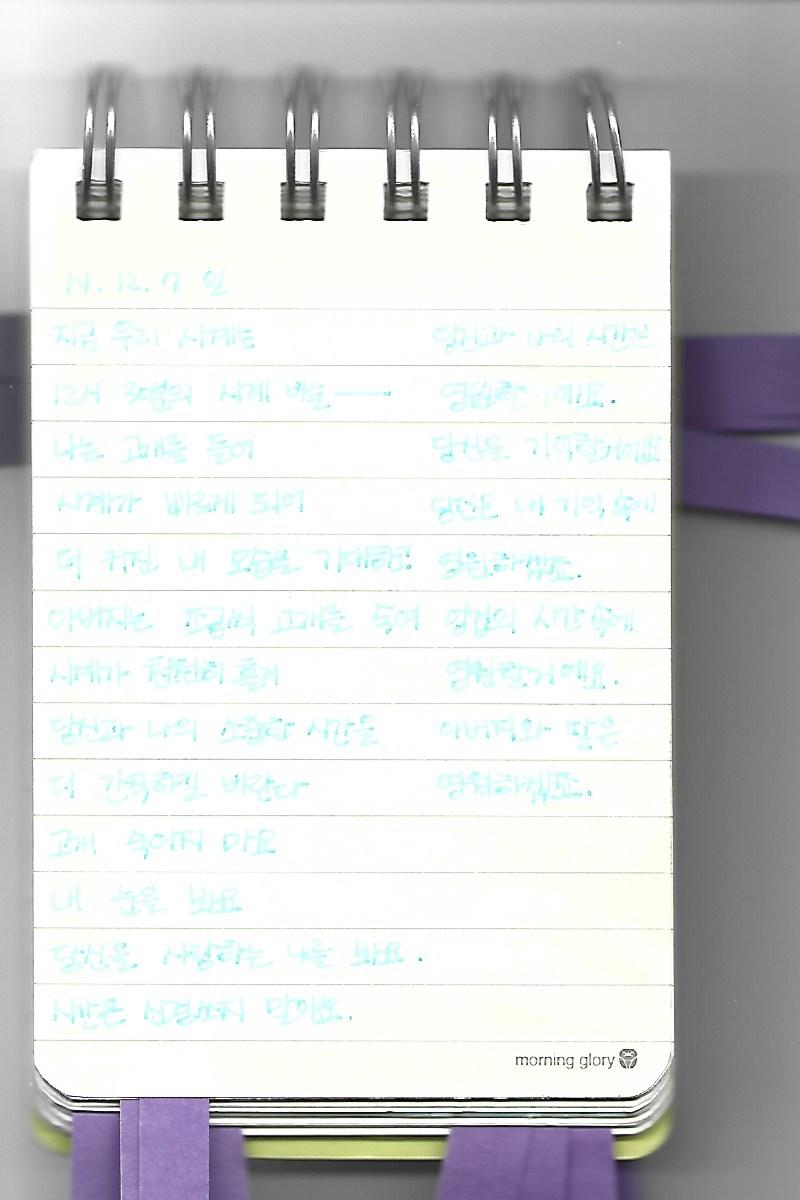 14. 12. 7 일
지금 우리 시계는
12시 30분의 시계 바늘 ——
나는 고개를 들어
시계가 빠르게 되어
더 커진 내 모습을 기대하고
아버지는 조금씩 고개를 숙여
시계가 천천히 흘러
당신과 나의 소중한 시간을
더 간직하길 바란다
고개 숙이지 마요
내 눈을 봐요
당신을 사랑하는 나를 봐요.
시간은 신경쓰지 말아요.
당신과 나의 시간은
영원할 거예요.
당신을 기억할거에요
당신은 내 기억 속에
영원하겠죠.
영겁의 시간 속에
영원할거예요.
아버지와 딸은
영원하겠죠.
morning glory